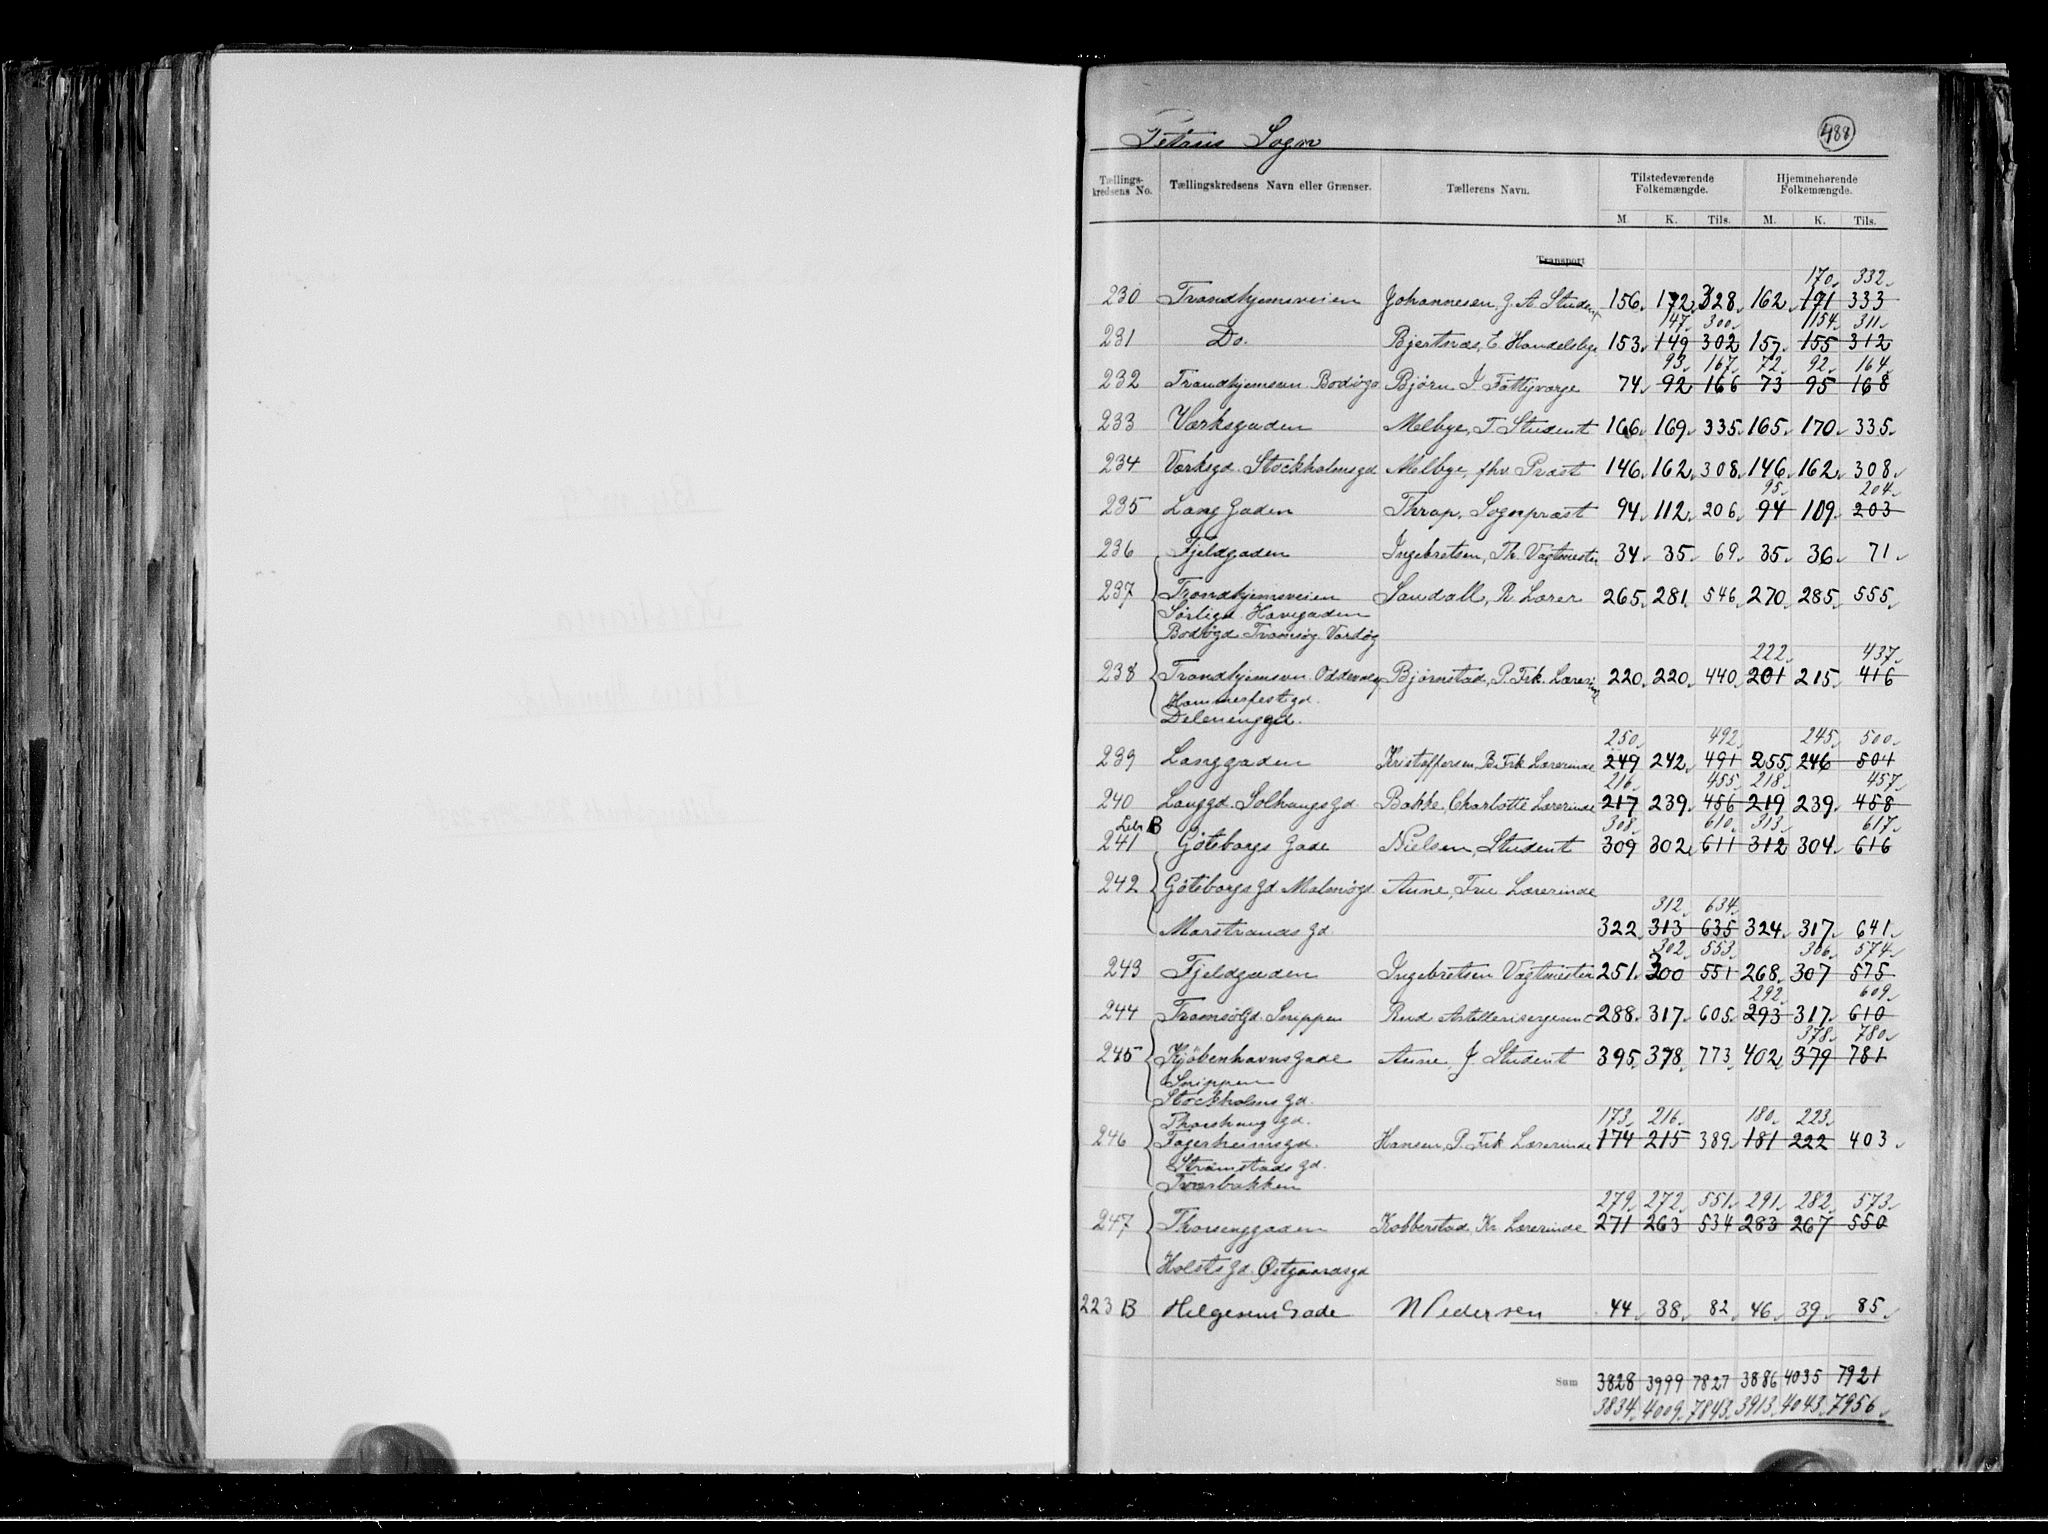 Petrus Sogn
488
Tællings-kredsens No. Tællingskredsens Navn eller Grænser. Tællerens Navn. Tilstedeværende Folkemængde. Hjemmehørende Folkemængde.
M. K. Tils. M. K. Tils.
Transport
170. 332.
230 Trondhjemsveien Johannesen, J. A. Student 156. 172. 328. 162. 171 333
147. 300. 154. 311.
231 Do. Bjertnæs, E. Handelsbge 153. 149 302 157. 155 312
93. 167. 72. 92. 164.
232 Trondhjemsvn. Bodøgd Bjørn J. Fattigvorge 74. 92 166 73 95 168
233 Værksgaden Melbye, T. Student 166. 169. 335. 165. 170. 335.
234 Værksgd. Stockholmsgd Melbye, fhv. Præst 146. 162. 308. 146. 162. 308.
95. 204.
235 Langgaden Thrap, Sognepræst 94. 112. 206. 94 109. 203
236 Fjeldgaden Ingebretsen, Th. Vagtmester 34. 35. 69. 35. 36. 71.
237 Trondhjemsveien Sandall, R. Lærer 265. 281. 546. 270. 285. 555.
Sørligd. Havegaden
Bodøgd Tromsøg. Vardøg
222. 437.
238 Trondhjemsvn. Oddevdg Bjørnstad, P. Frk. Lærerinde 220. 220. 440. 201 215. 416
Hammerfestgd.
Delenenggd.
250. 492. 245. 500.
239 Langgaden Kristoffersen, B. Frk. Lærerinde 249 242. 491 255. 246 501
216. 455. 218. 457.
240 Langgd. Solhaugsgd. Bakke, Charlotte Lærerinde 217 239. 456 219 239. 458
Litr B 308. 610. 313. 617.
241 Göteborgs Gade Nielsen, Student 309 302. 611 312 304. 616
242 Göteborgsgd Malmøgd. Aune, Fru Lærerinde
312. 634.
Marstrandsgd. 322. 313 635 324. 317. 641.
302. 553. 306. 574.
243 Fjeldgaden Ingebretsen Vagtmester 251. 300 551 268. 307 575
292. 609.
244 Tromsøgd. Snippen Rud Artillerisergeant 288. 317. 605. 293 317. 610
378. 780.
245 Kjøbenhavnsgade Aune, J. Student 395. 378. 773. 402. 379 781
Snippen
Stockholmsgd.
Thorshauggd. 173. 216. 180. 223.
246 Fagerheimsgd. Hansen, P. Frk Lærerinde 174 215 389. 181 222 403.
Strømstadsgd.
Tværbakken
279. 272. 551. 291. 282. 573.
247 Thorsenggaden Kobberstad, Kr. Lærerinde 271 263 534 283 267 550
Holstsgd. Østgaardsgd
223 B Helgesens Gade N Pedersen 44. 38. 82. 46. 39. 85.
Sum 3828 3999 7827 3886 4035 7921
3834. 4009. 7843. 3913. 4043. 7956.